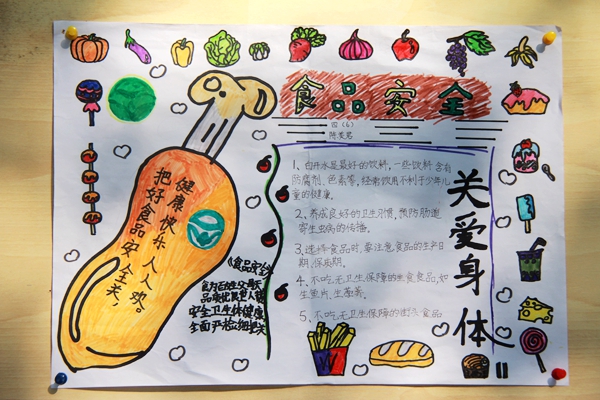 食品安全
四(6)
1、白开水是最好的饮料，一些饮料含有
防腐剂、色素等，经常饮用不利于少年儿
童的健康。
2、养成良好的卫生习惯，预防肠道
寄生虫病的传播。
3、选择食品时，要注意食品的生产日
期、保质期。
4、不吃无卫生保障的生食食品，如
生鱼片、生荤菜。
5、不吃无卫生保障的街头食品
关爱身体
健康快乐人人欢。
把好食品安全关，
《食品安全》
食为百姓头等天
安全卫生体健康
全面严检细把关